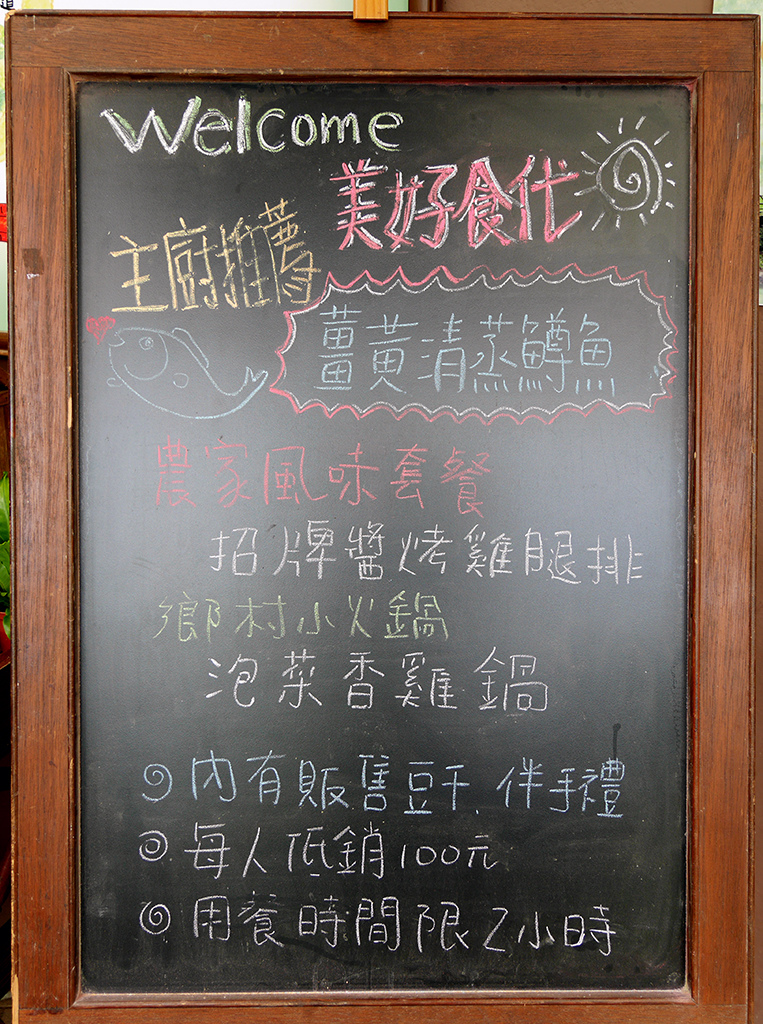 Welcome
美好食代
主廚推薦
薑黃清蒸鱒魚
農家風味套餐
招牌醬烤雞腿排
鄉村小火鍋
泡菜香雞鍋
內有販售豆干、伴手禮
每人低銷100元
用餐時間限2小時